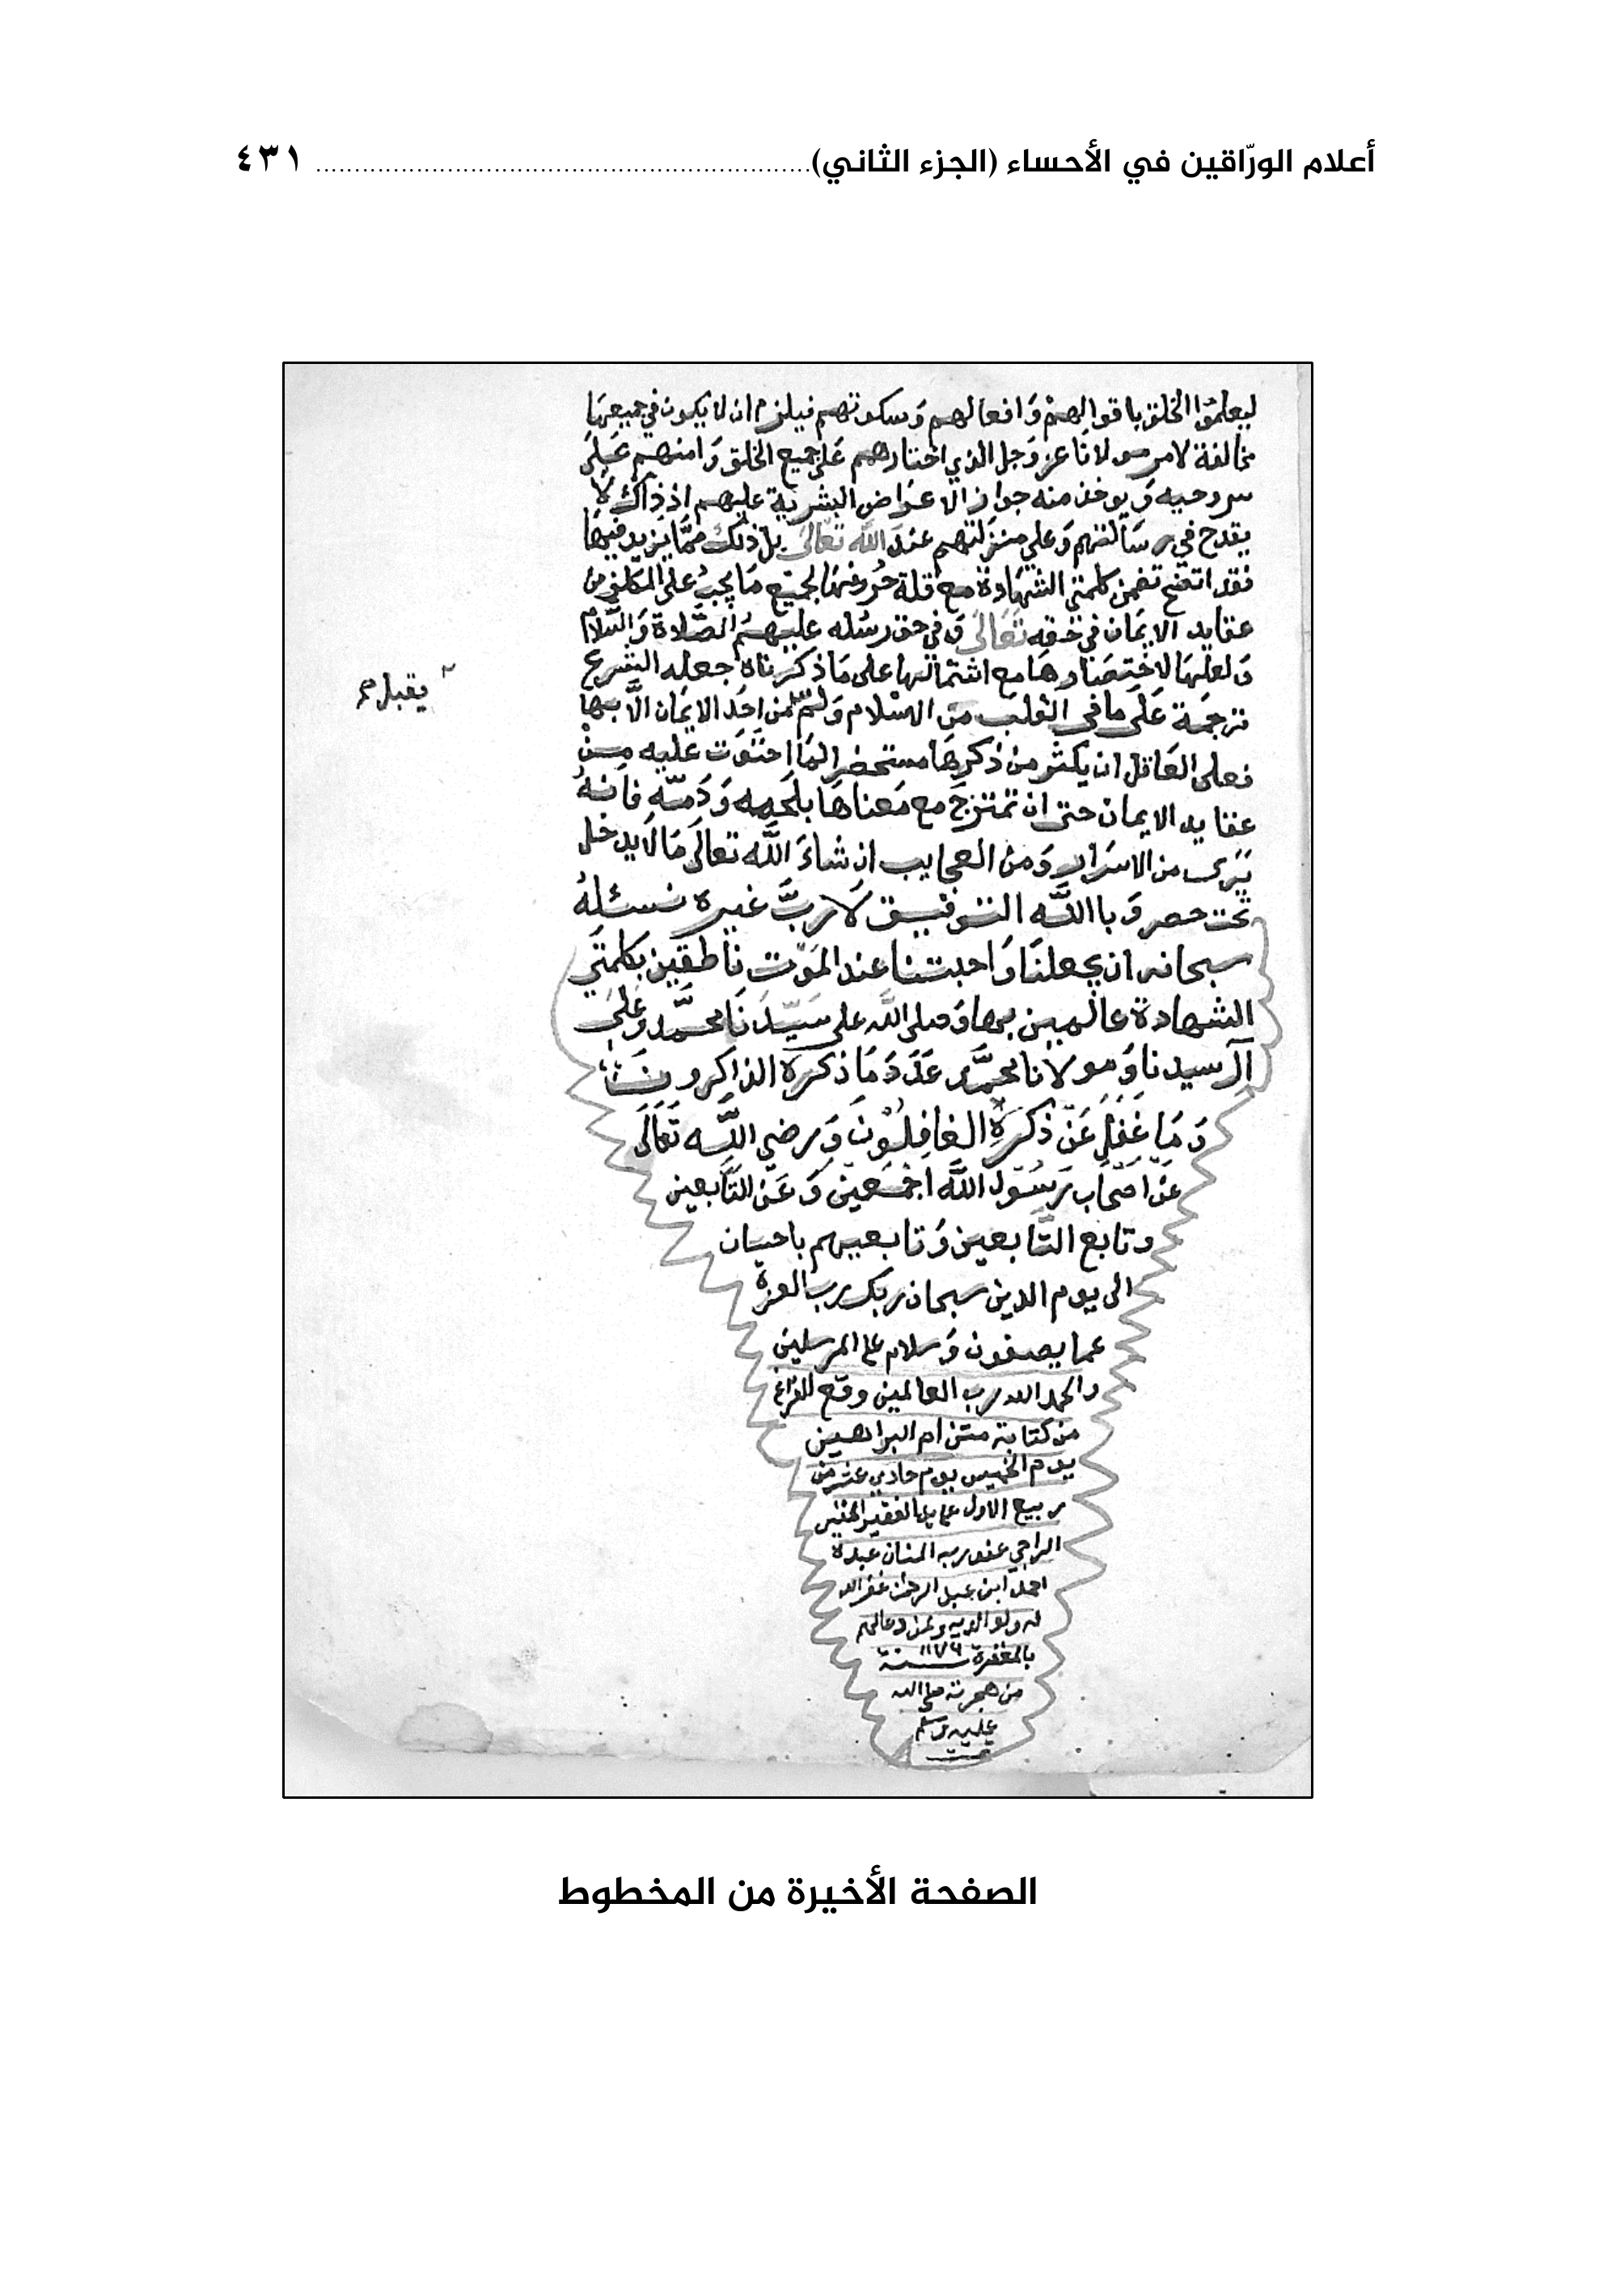 أعلام الورّاقين في الأحساء (الجزء الثاني)............................................................... ٤٣١
ليعلموا الخلق باقوالهم وَافعالهم وَسكوتهم فيلزم ان لا يكون في جميعها
مخالفة لامر مولانا عز وَجل الذي اختارهم عَلى جميع الخلق وَامنهم عَلَى
سر وحيه وَيوخذ منه جواز الاعرَاض البشرية عليهم اذ ذاك لا
يقدح في رسَالتهم وَعلي منزلتهم عندَ اللَّه تعَالَى بل ذلك ممَّا يزيد فيها
فقد اتضح تضمن كلمتي الشهَادة مع قلة حُروفها لجميع مَا يجبُ على المكلف من
عقايد الايمَان في حَقه تَعَالَى وَفي حق رسُله عليهمُ الصَّلاة وَالسَّلام
وَلعلهَا لاختصَارهَا مع اشتمالها على مَا ذكَرناه جعله الشرع
ترجمَة عَلَى مَا في القلب من الاسْلام وَلم من احَد الايمَان الَّا بها
يقبل
فعلى العَاقل ان يكثر من ذكرهَا مستحضرا لمَا احتَوَت عَليه مِنْ
عقايد الايمان حتى ان تمتزجَ مع مَعناهَا بلحمه وَدَمّه فَانهُ
يَرى من الاسرَار وَمن العجايب ان شاءَ اللَّه تعالَى مَا لَا يدخل
تحت حصر وَباالله التوفيق لَا ربَّ غيره نسئلهُ
سبحانه ان يجعلنَا وَاحبتنا عند الموَت ناطقين بكلمتَي
الشهادة عالمين بها وَصلى اللَّه على سَيّدنَا محمَّد وَعَلَى
آل سيدنا وَمولانا محمَّد عَدَدَ مَا ذكره الذاكرون
وَمَا غَفَل عَنّ ذكرهِ الغافِلُون وَرضي اللَّه تَعَالَى
عَنّ اصْحَاب رَسُول اللَّه اجْمعينَ وَعَن التَّابعين
وتابع التَّابعين وَتابعيهم باحسان
الى يوم الدين سبحان ربك رب العزة
عما يصفون وَسلام على المرسلين
والحمد الله رب العالمين وقع الفراغ
من كتابة متن ام البراهين
يوم الخميس يوم حادي عشر من
ربيع الاول على يد الفقير الحقير
الراجي عفو ربه المنان عبده
احمد ابن عبد الرحمن غفر الله
له ولوالديه ولمن دعا لهم
بالمغفرة سنة ١١٧٦
من هجرته صلى الله
عليه وسلم
تمت
الصفحة الأخيرة من المخطوط